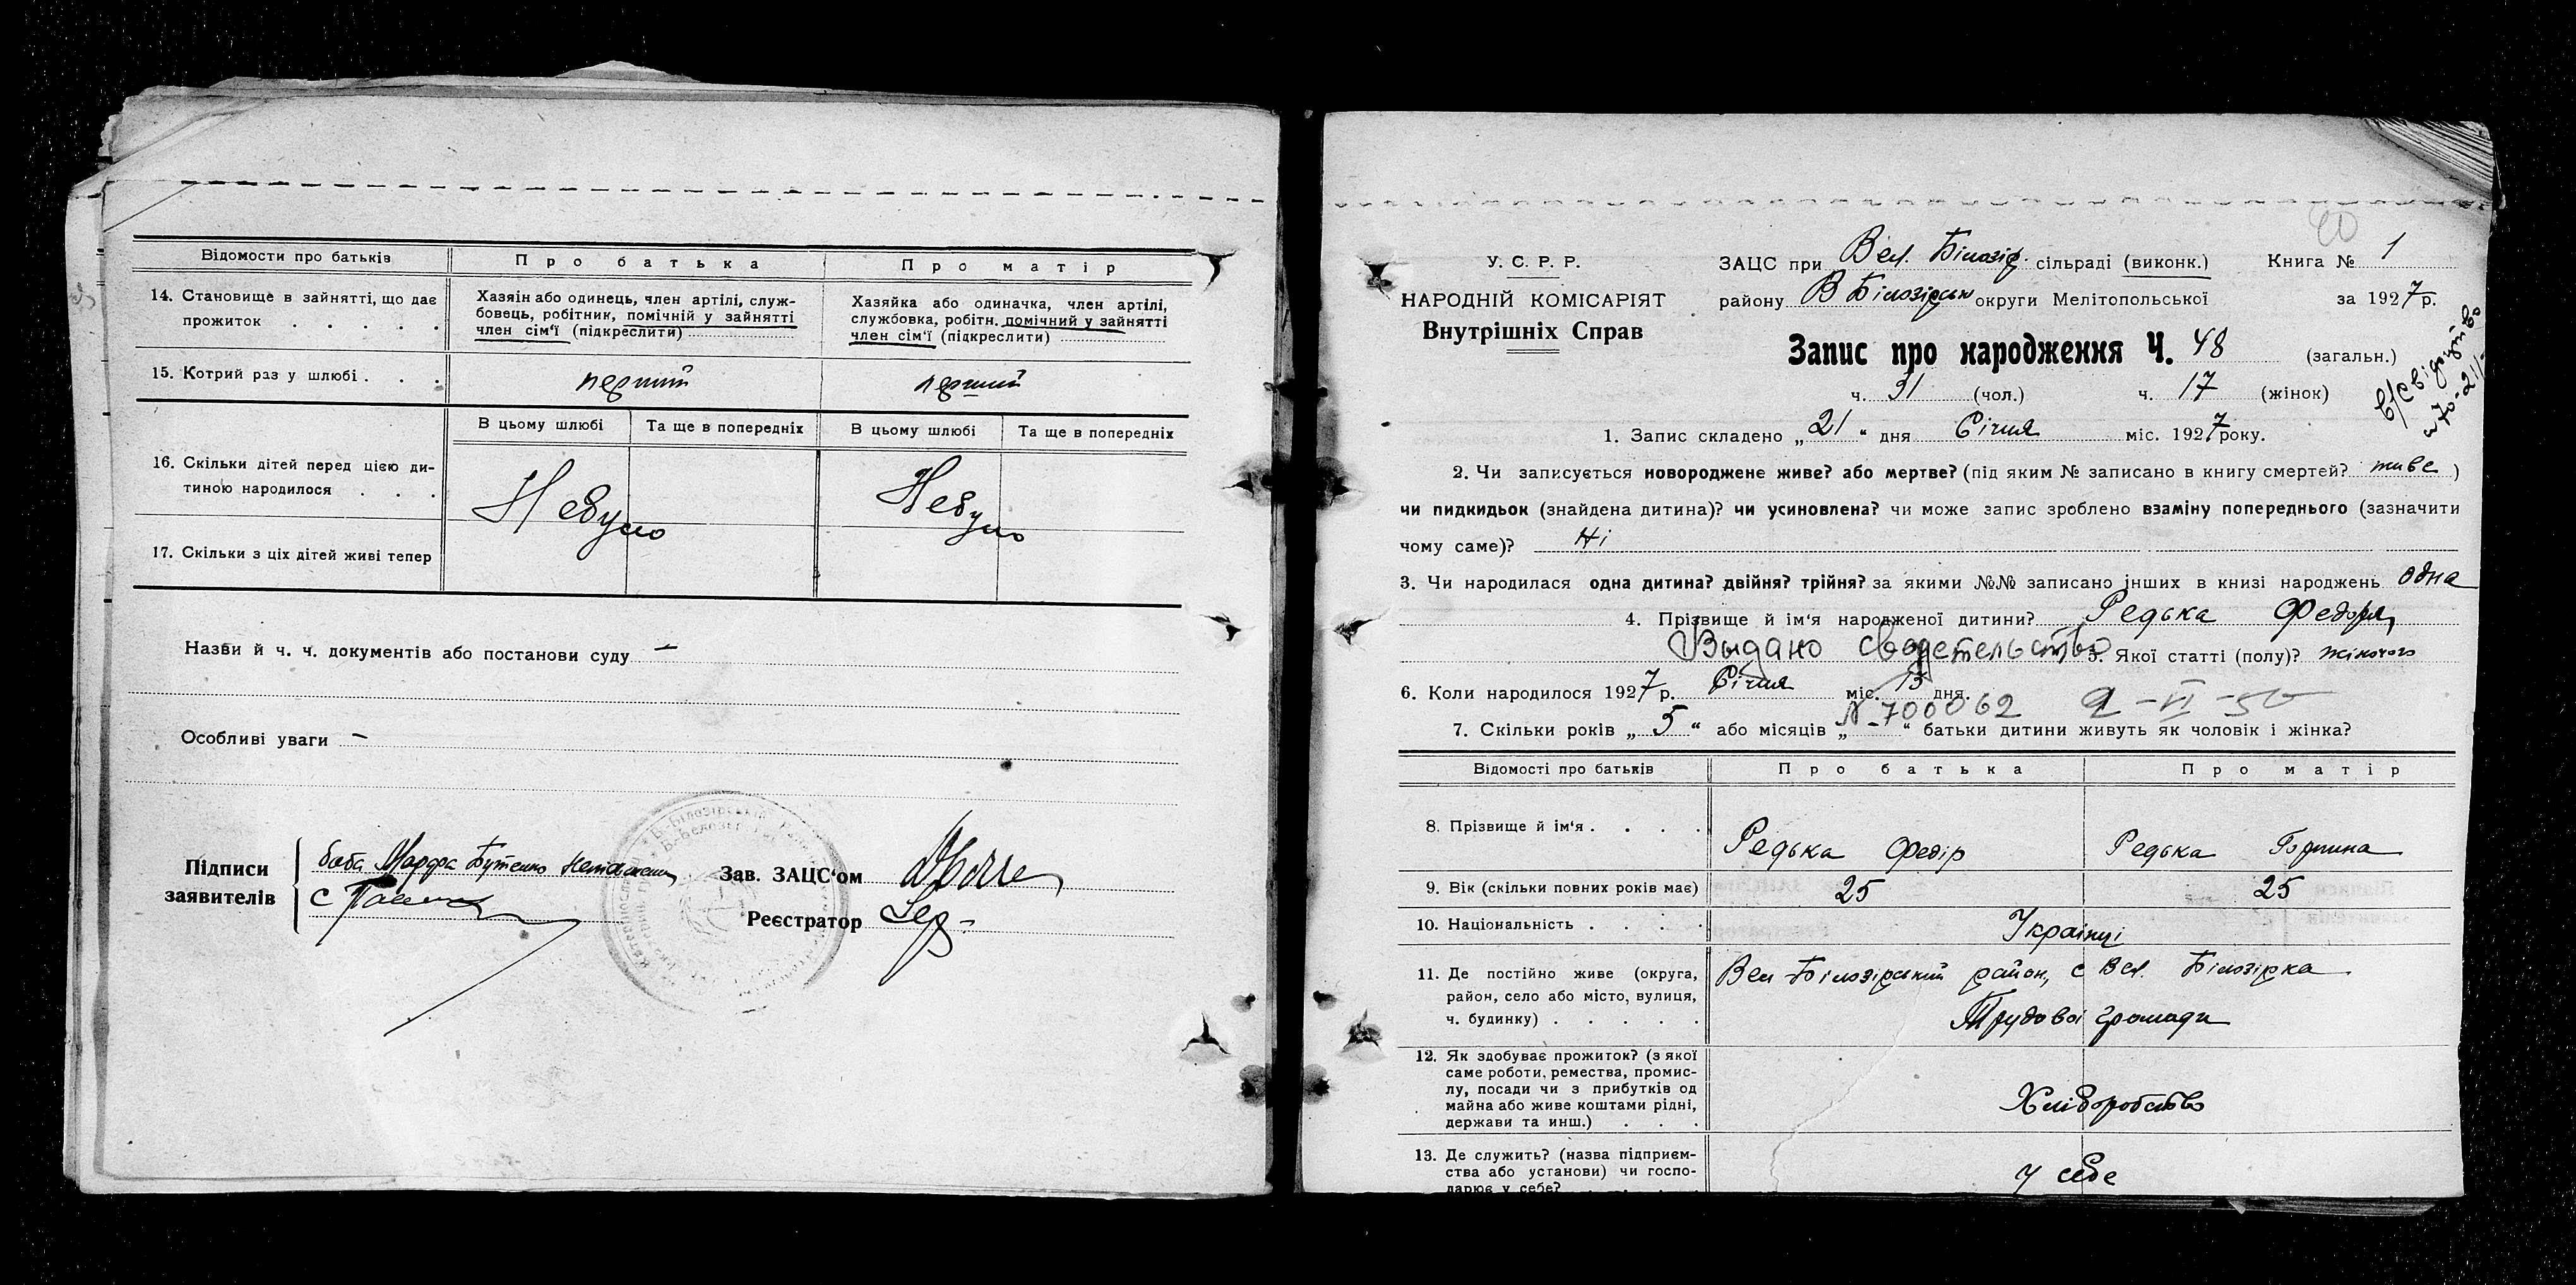 Відомости про батьків
Про батька
Про матір
14. Становище в зайнятті, що дає прожиток . . . . .
Хазяїн або одинець, член артілі, служ-
бовець, робітник, помічній у зайнятті
член сім'ї (підкреслити)
Хазяйка або одиначка, член артілі,
службовка, робітн. помічний у зайнятті
член сім'ї (підкреслити)
15. Котрий раз у шлюбі . . .
перший
перший
В цьому шлюбі
Та ще в попередніх
В цьому шлюбі
Та ще в попередніх
16. Скільки дітей перед цією ди-
тиною народилося . . .
Небуло
Небуло
17. Скільки з ціх дітей живі тепер
Назви й ч. ч. документів або постанови суду —
Особливі уваги —
Підписи
заявителів
баба Марфа Бутенко
Зав. ЗАЦС'ом
Реєстратор
У. С. Р. Р.
НАРОДНІЙ КОМІСАРІЯТ
Внутрішніх Справ
ЗАЦС при Вел. Білозір. сільраді (виконк.)
Книга № 1
району В Білозірськ округи Мелітопольської
за 1927 р.
Запис про народження Ч. 48 (загальн.)
ч. 31 (чол.) ч. 17 (жінок)
1. Запис складено „ 21 “ дня Січня міс. 1927 року.
2. Чи записується новороджене живе? або мертве? (під яким № записано в книгу смертей? живе )
чи пидкидьок (знайдена дитина)? чи усиновлена? чи може запис зроблено взаміну попереднього (зазначити
чому саме)? Ні
3. Чи народилася одна дитина? двійня? трійня? за якими №№ записано інших в книзі народжень одна
4. Прізвище й ім'я народженої дитини? Редька Федора
Выдано свадетельство
5. Якої статті (полу)? жіночого
6. Коли народилося 1927 р. Січня міс. 15 дня.
N 700062 2-VI-50
7. Скільки років „ 5 “ або місяців „ - “ батьки дитини живуть як чоловік і жінка?
Відомості про батьків
Про батька
Про матір
8. Прізвище й ім'я . . . .
Редька Федір
Редька Горпина
9. Вік (скільки повних років має)
25
25
10. Національність . . . .
Українці
11. Де постійно живе (округа,
район, село або місто, вулиця,
ч. будинку) . . . . .
Вел Білозірський район, с Вел. Білозірка
Трудової громади
12. Як здобуває прожиток? (з якої
саме роботи, ремества, промис-
лу, посади чи з прибутків од
майна або живе коштами рідні,
держави та инш.) . . .
Хліборобство
13. Де служить? (назва підприєм-
ства або установи) чи госпо-
дарює у себе? . . . .
У себе